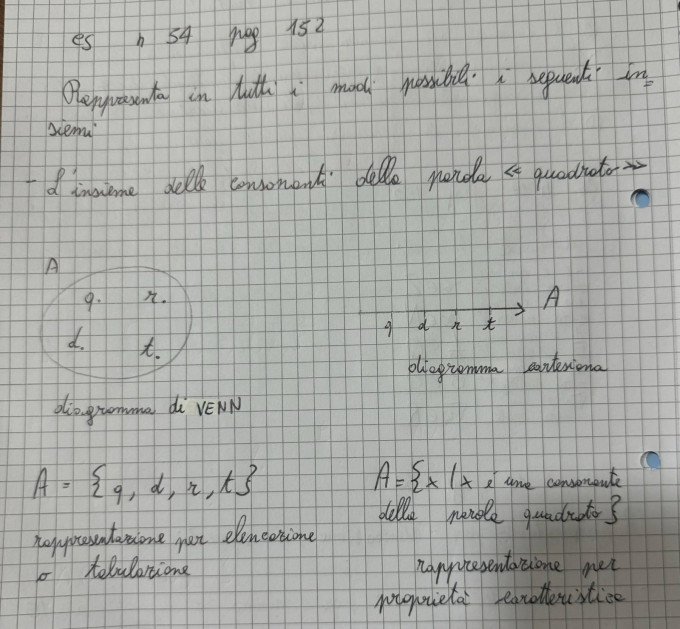 es n 54 pag 152
Rappresenta in tutti i modi possibili i seguenti in=
siemi
- L'insieme delle consonanti della parola « quadrato »
A
q. r.
d. t.
diagramma di VENN
A
q d r t
diagramma cartesiana
A = {q, d, r, t}
rappresentazione per elencazione
o tabulazione
A = {x | x é una consonante
della parola quadrato}
rappresentazione per
proprietà caratteristica